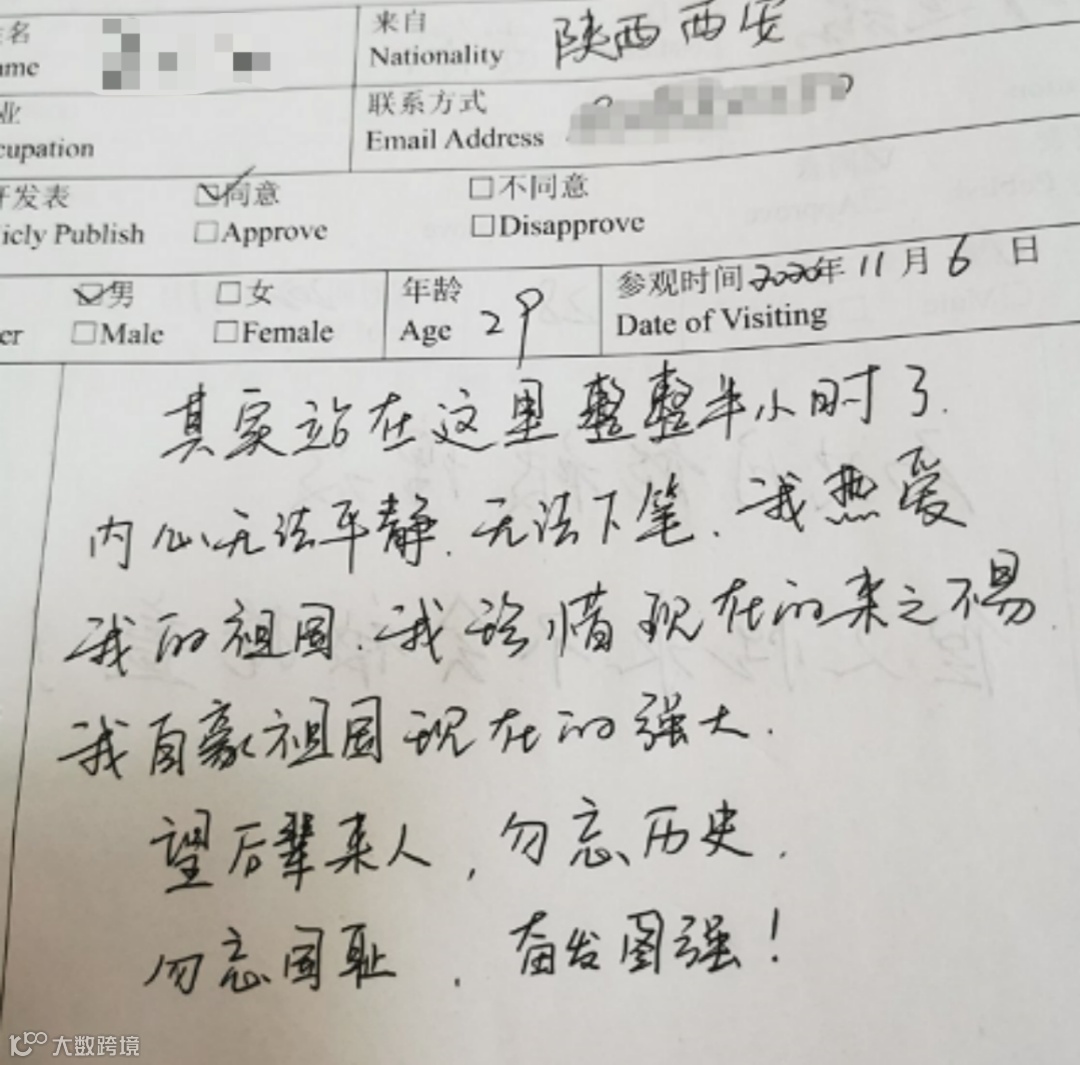 名 来自 陕西西安
ame Nationality
业 联系方式
cupation Email Address
开发表 同意 不同意
icly Publish Approve Disapprove
男 女 年龄 29 参观时间 2020年 11 月 6 日
er Male Female Age Date of Visiting
其实站在这里整整半小时了.
内心无法平静.无法下笔.我热爱
我的祖国.我珍惜现在的来之不易
我自豪祖国现在的强大.
望后辈来人,勿忘历史.
勿忘国耻.奋发图强!
大数跨境